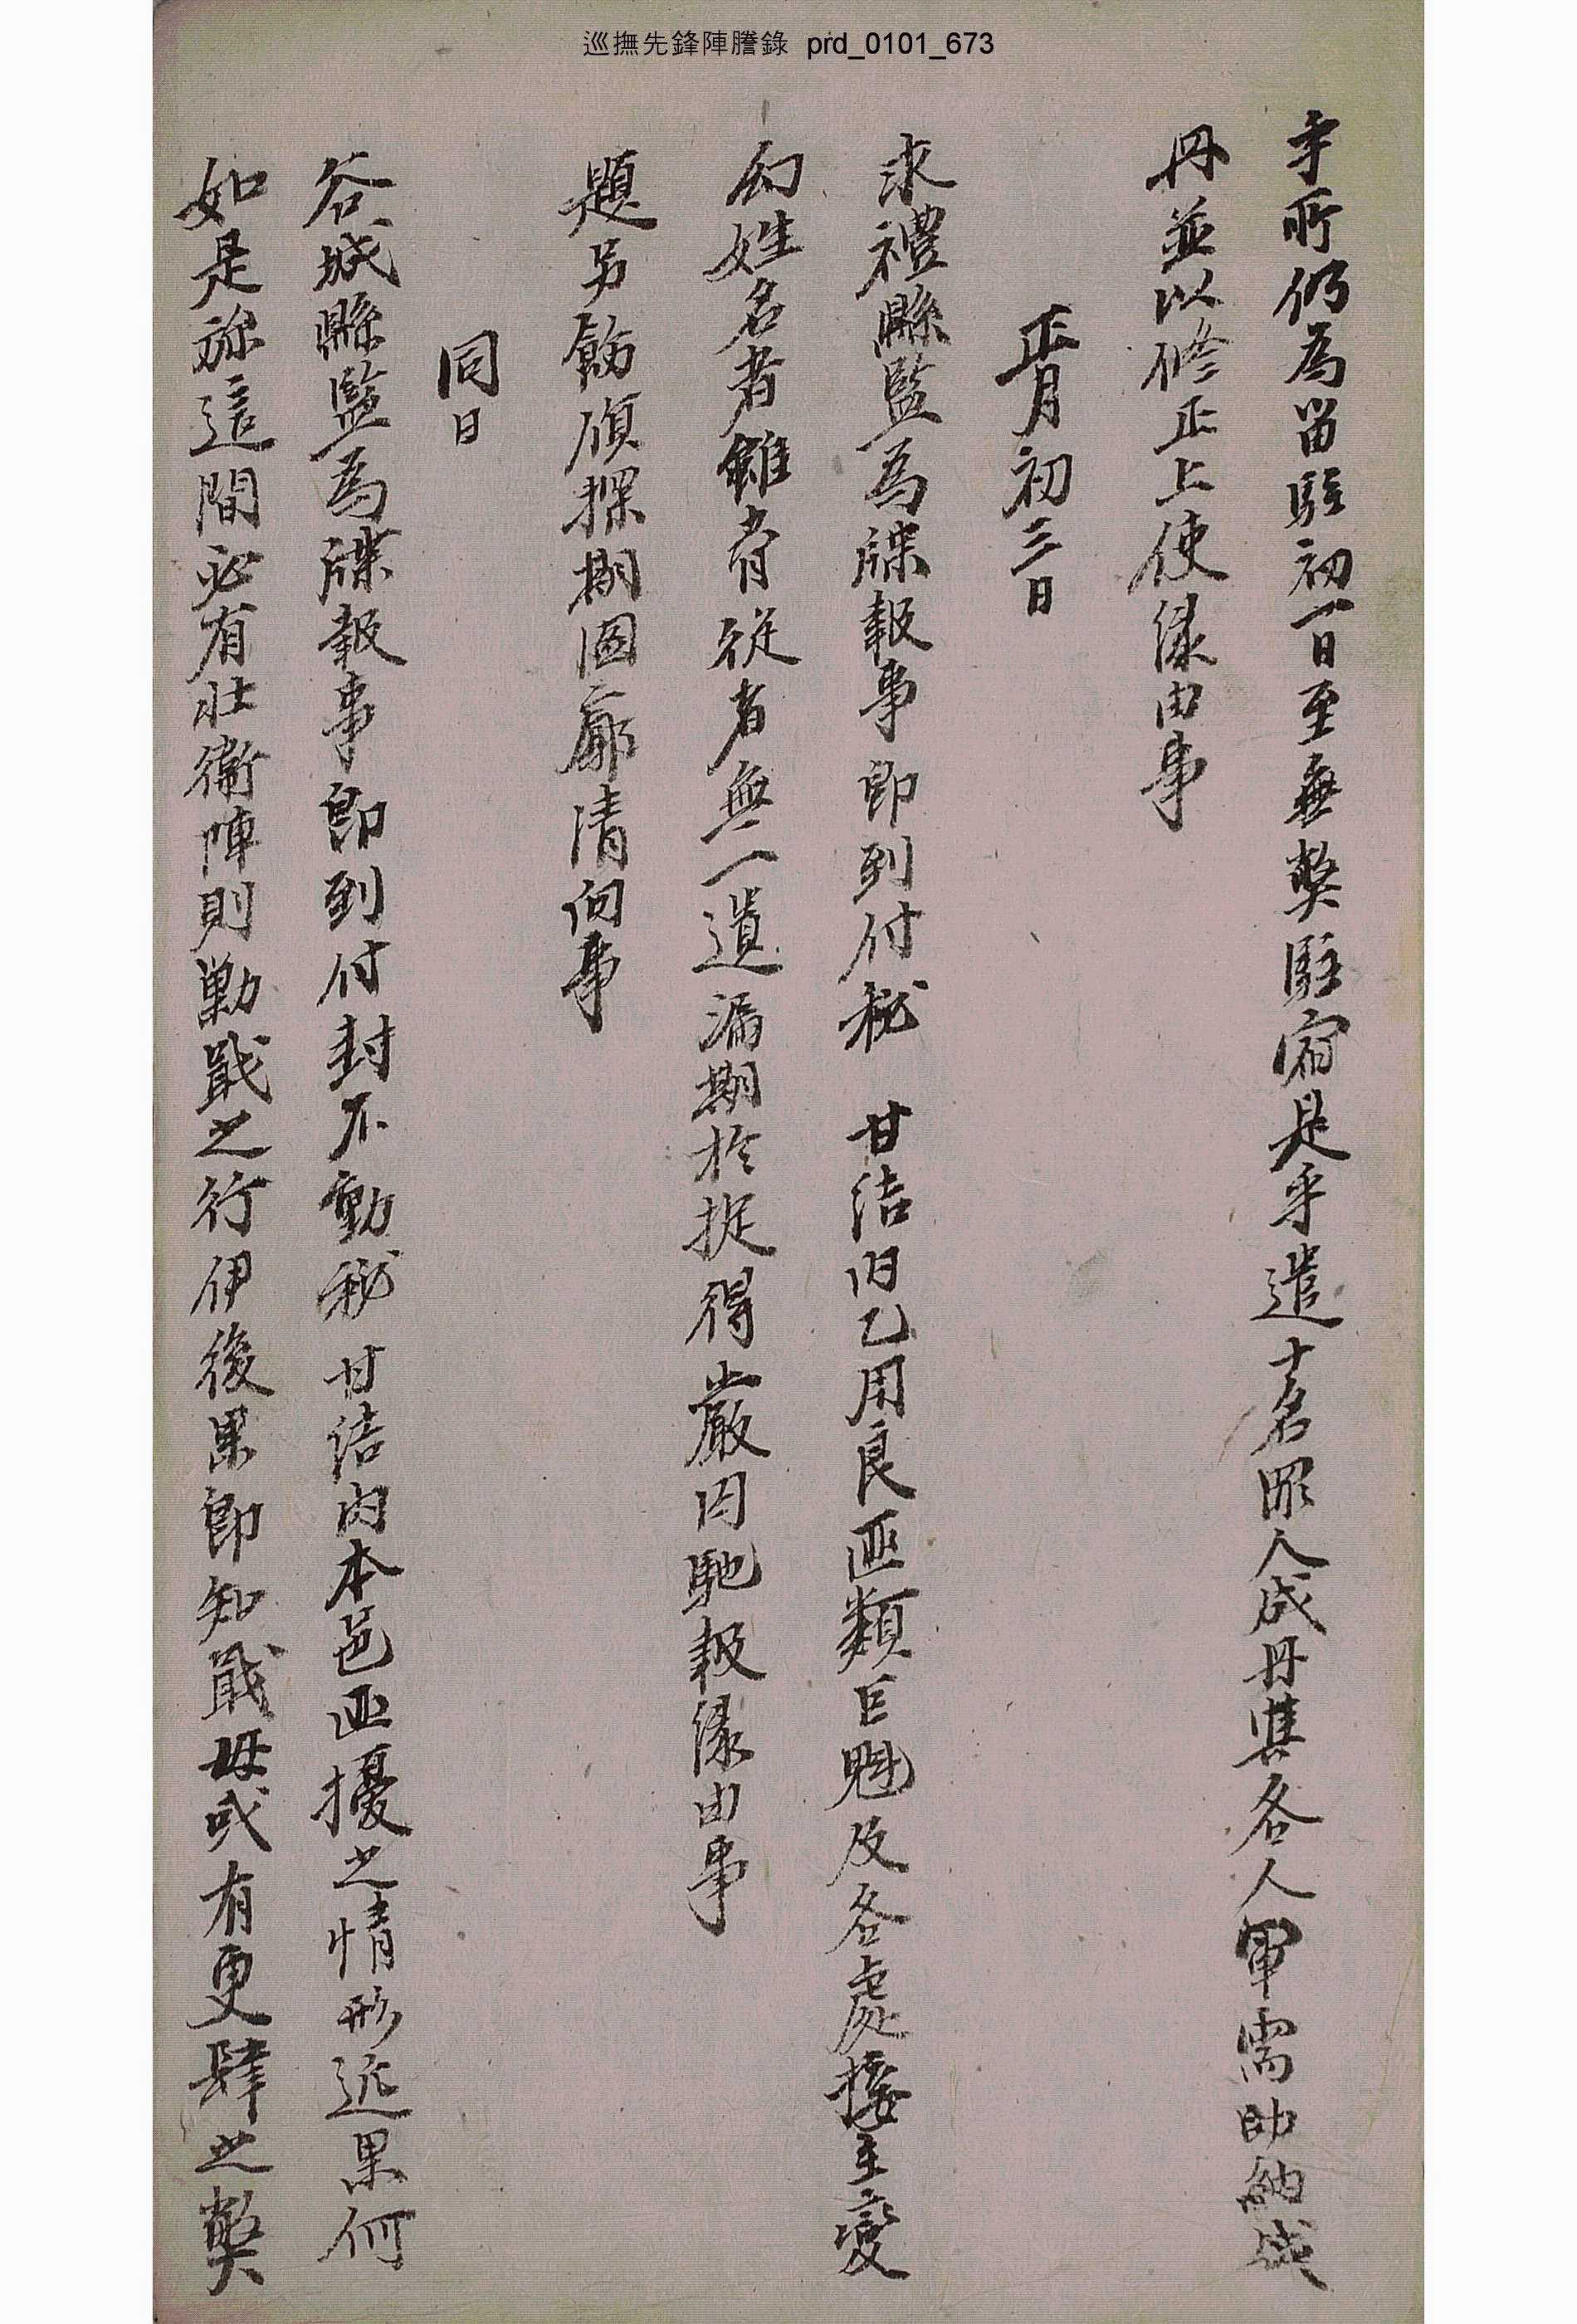 巡撫先鋒陣謄錄 prd_0101_673
乎所仍爲留駐初一日至無獘駐宿是乎遣士名罪人成冊其各人軍需助納成
冊並以修正上使緣由事
正月初三日
求禮縣監爲牒報事卽到付秘 甘結內乙用良匪類巨魁及各處接主變
幻姓名者雖脅從者無一遺漏期於捉得嚴囚馳報緣由事
題另飭偵探期圖廓清向事
同日
谷城縣監爲牒報事卽到付封不動秘 甘結內本邑匪擾之情形近果何
如是旀這間必有壯衛陣則勦戢之行伊後果卽知戢毋或有更肆之獘